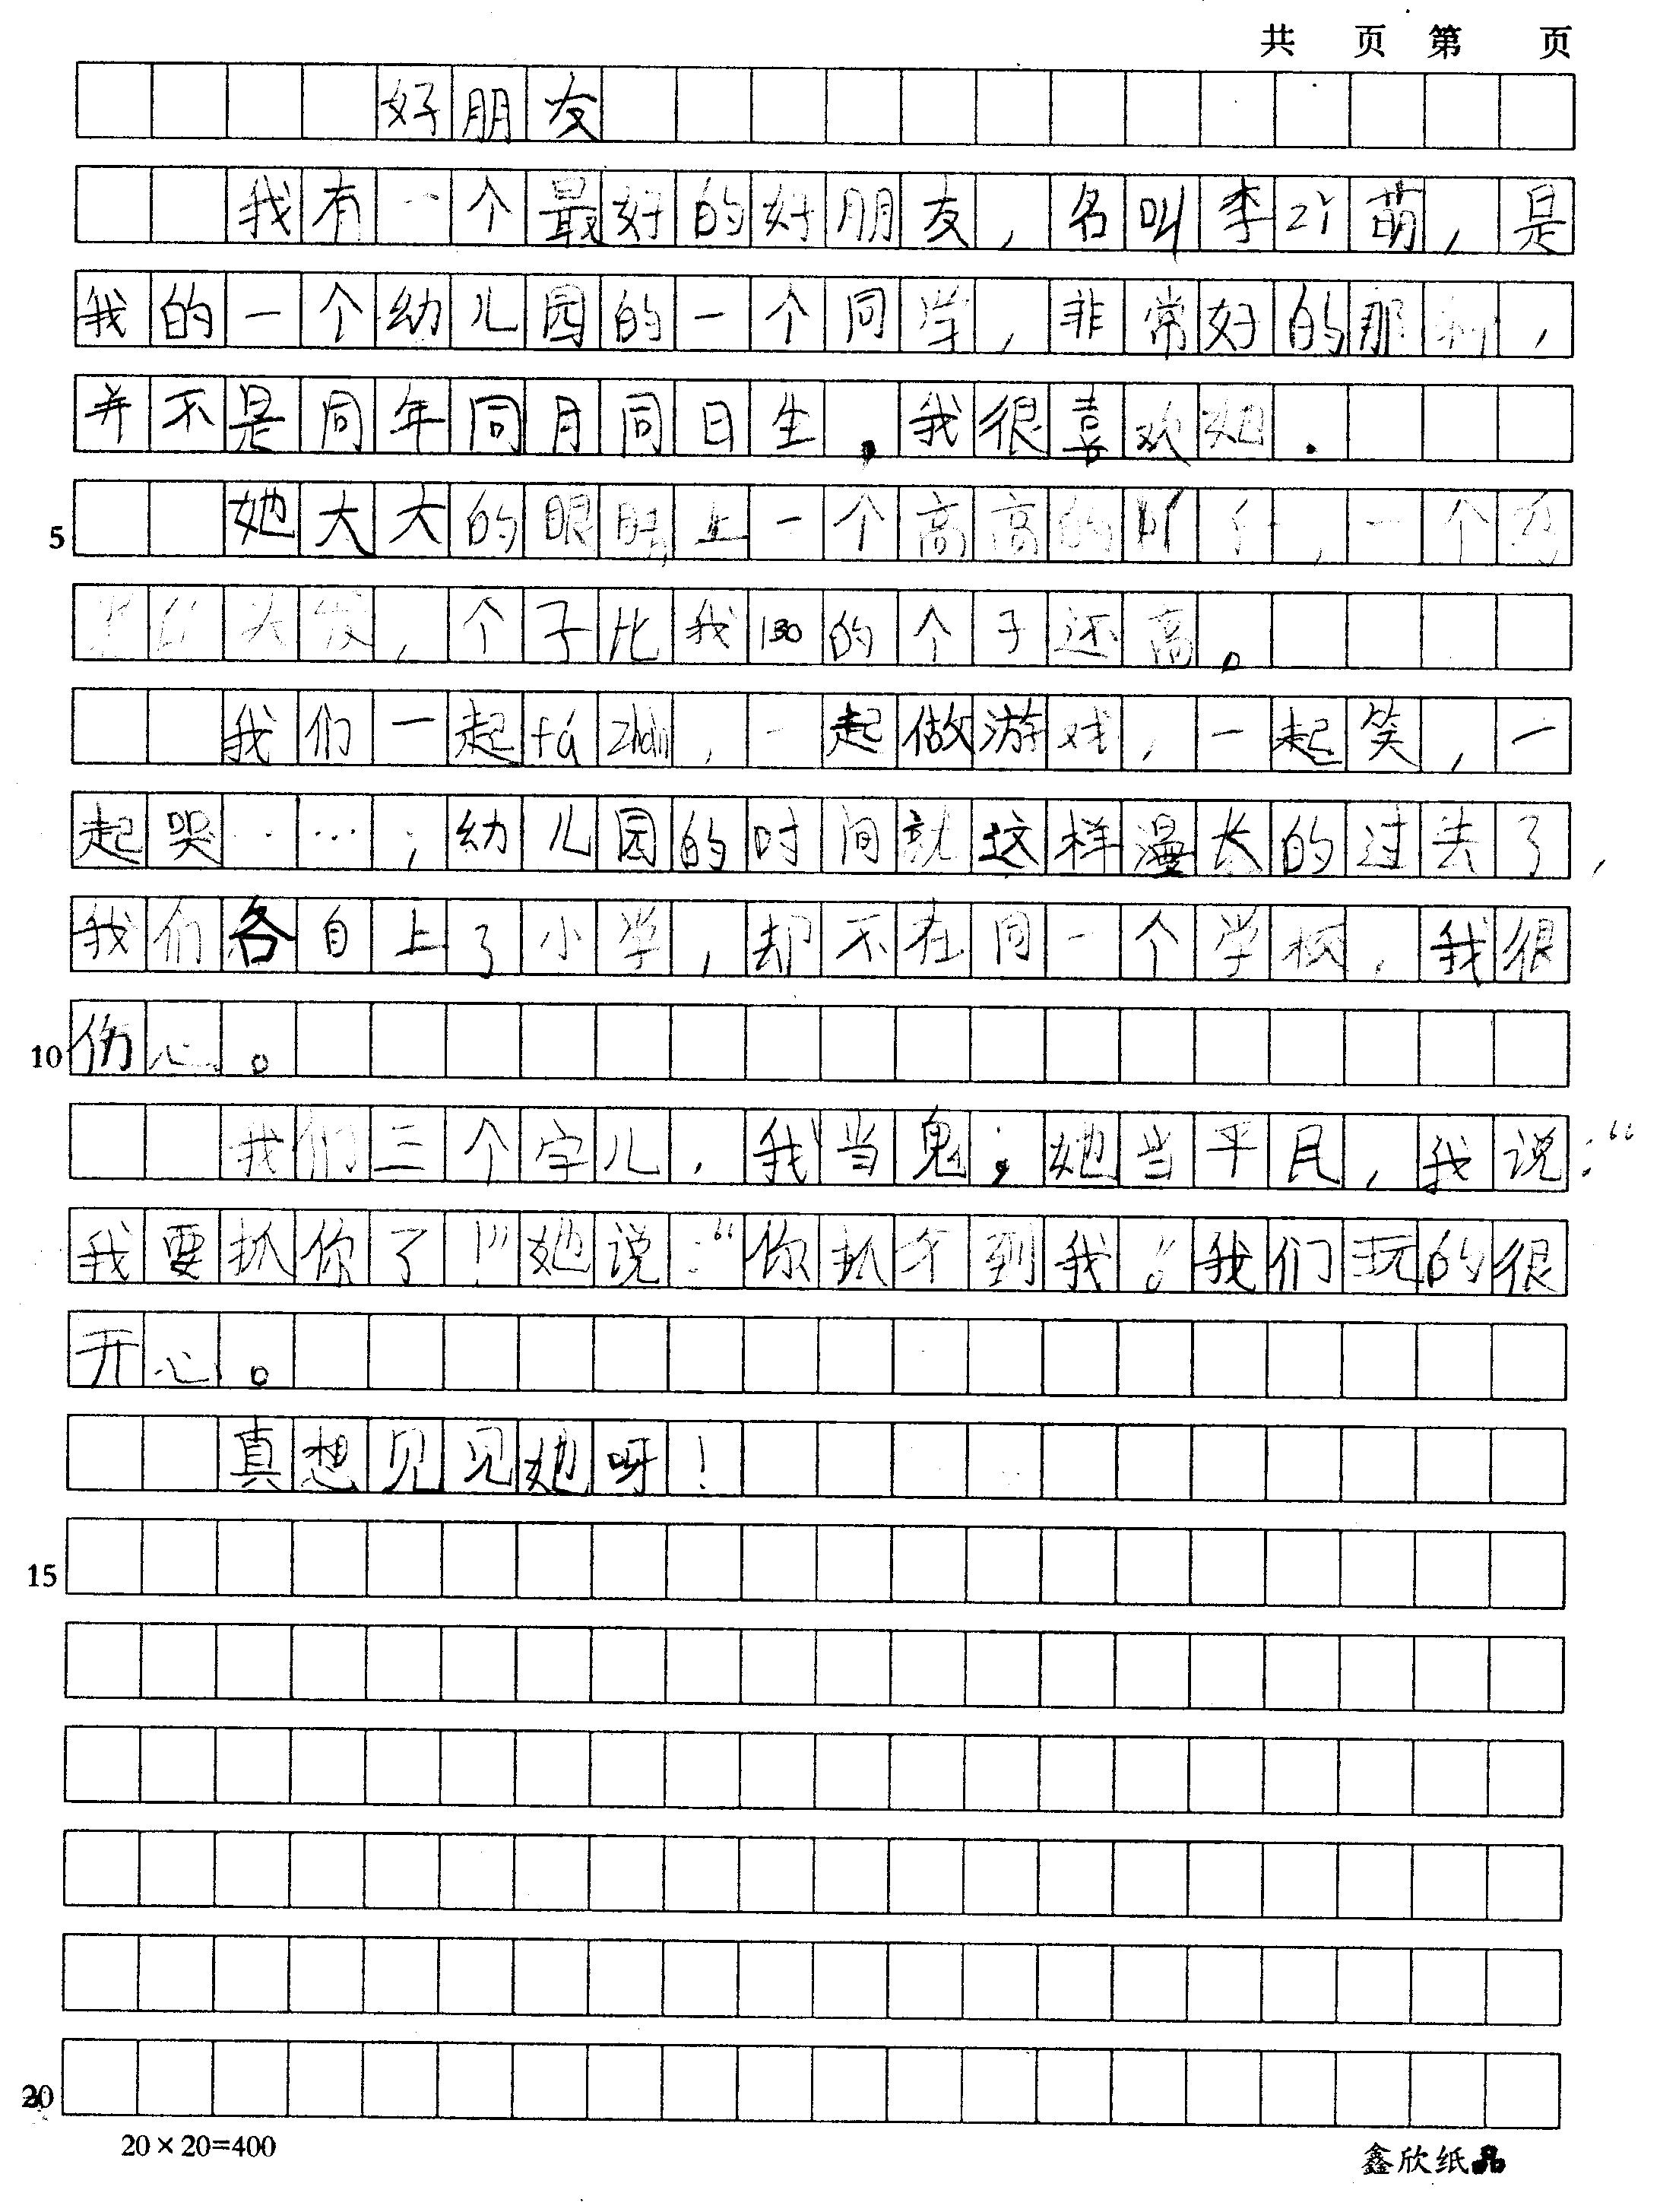 共 页 第 页
好朋友
我有一个最好的好朋友,名叫李 萌,是
我的一个幼儿园的一个同学,非常好的那 ,
并不是同年同月同日生。我很喜欢她.
5 她大大的眼睛上一个高高的 子,一个
头发,个子比我130的个子还高。
我们一起fá zhàn,一起做游戏,一起笑,一
起哭……;幼儿园的时间就这样漫长的过去了,
我们各自上了小学,却不在同一个学校,我很
10 伤心。
我们三个字儿,我当鬼;她当平民,我说:“
我要抓你了!”她说:“你抓不到我。”我们玩的很
开心。
真想见见她呀!
15
20
20×20=400 鑫欣纸品